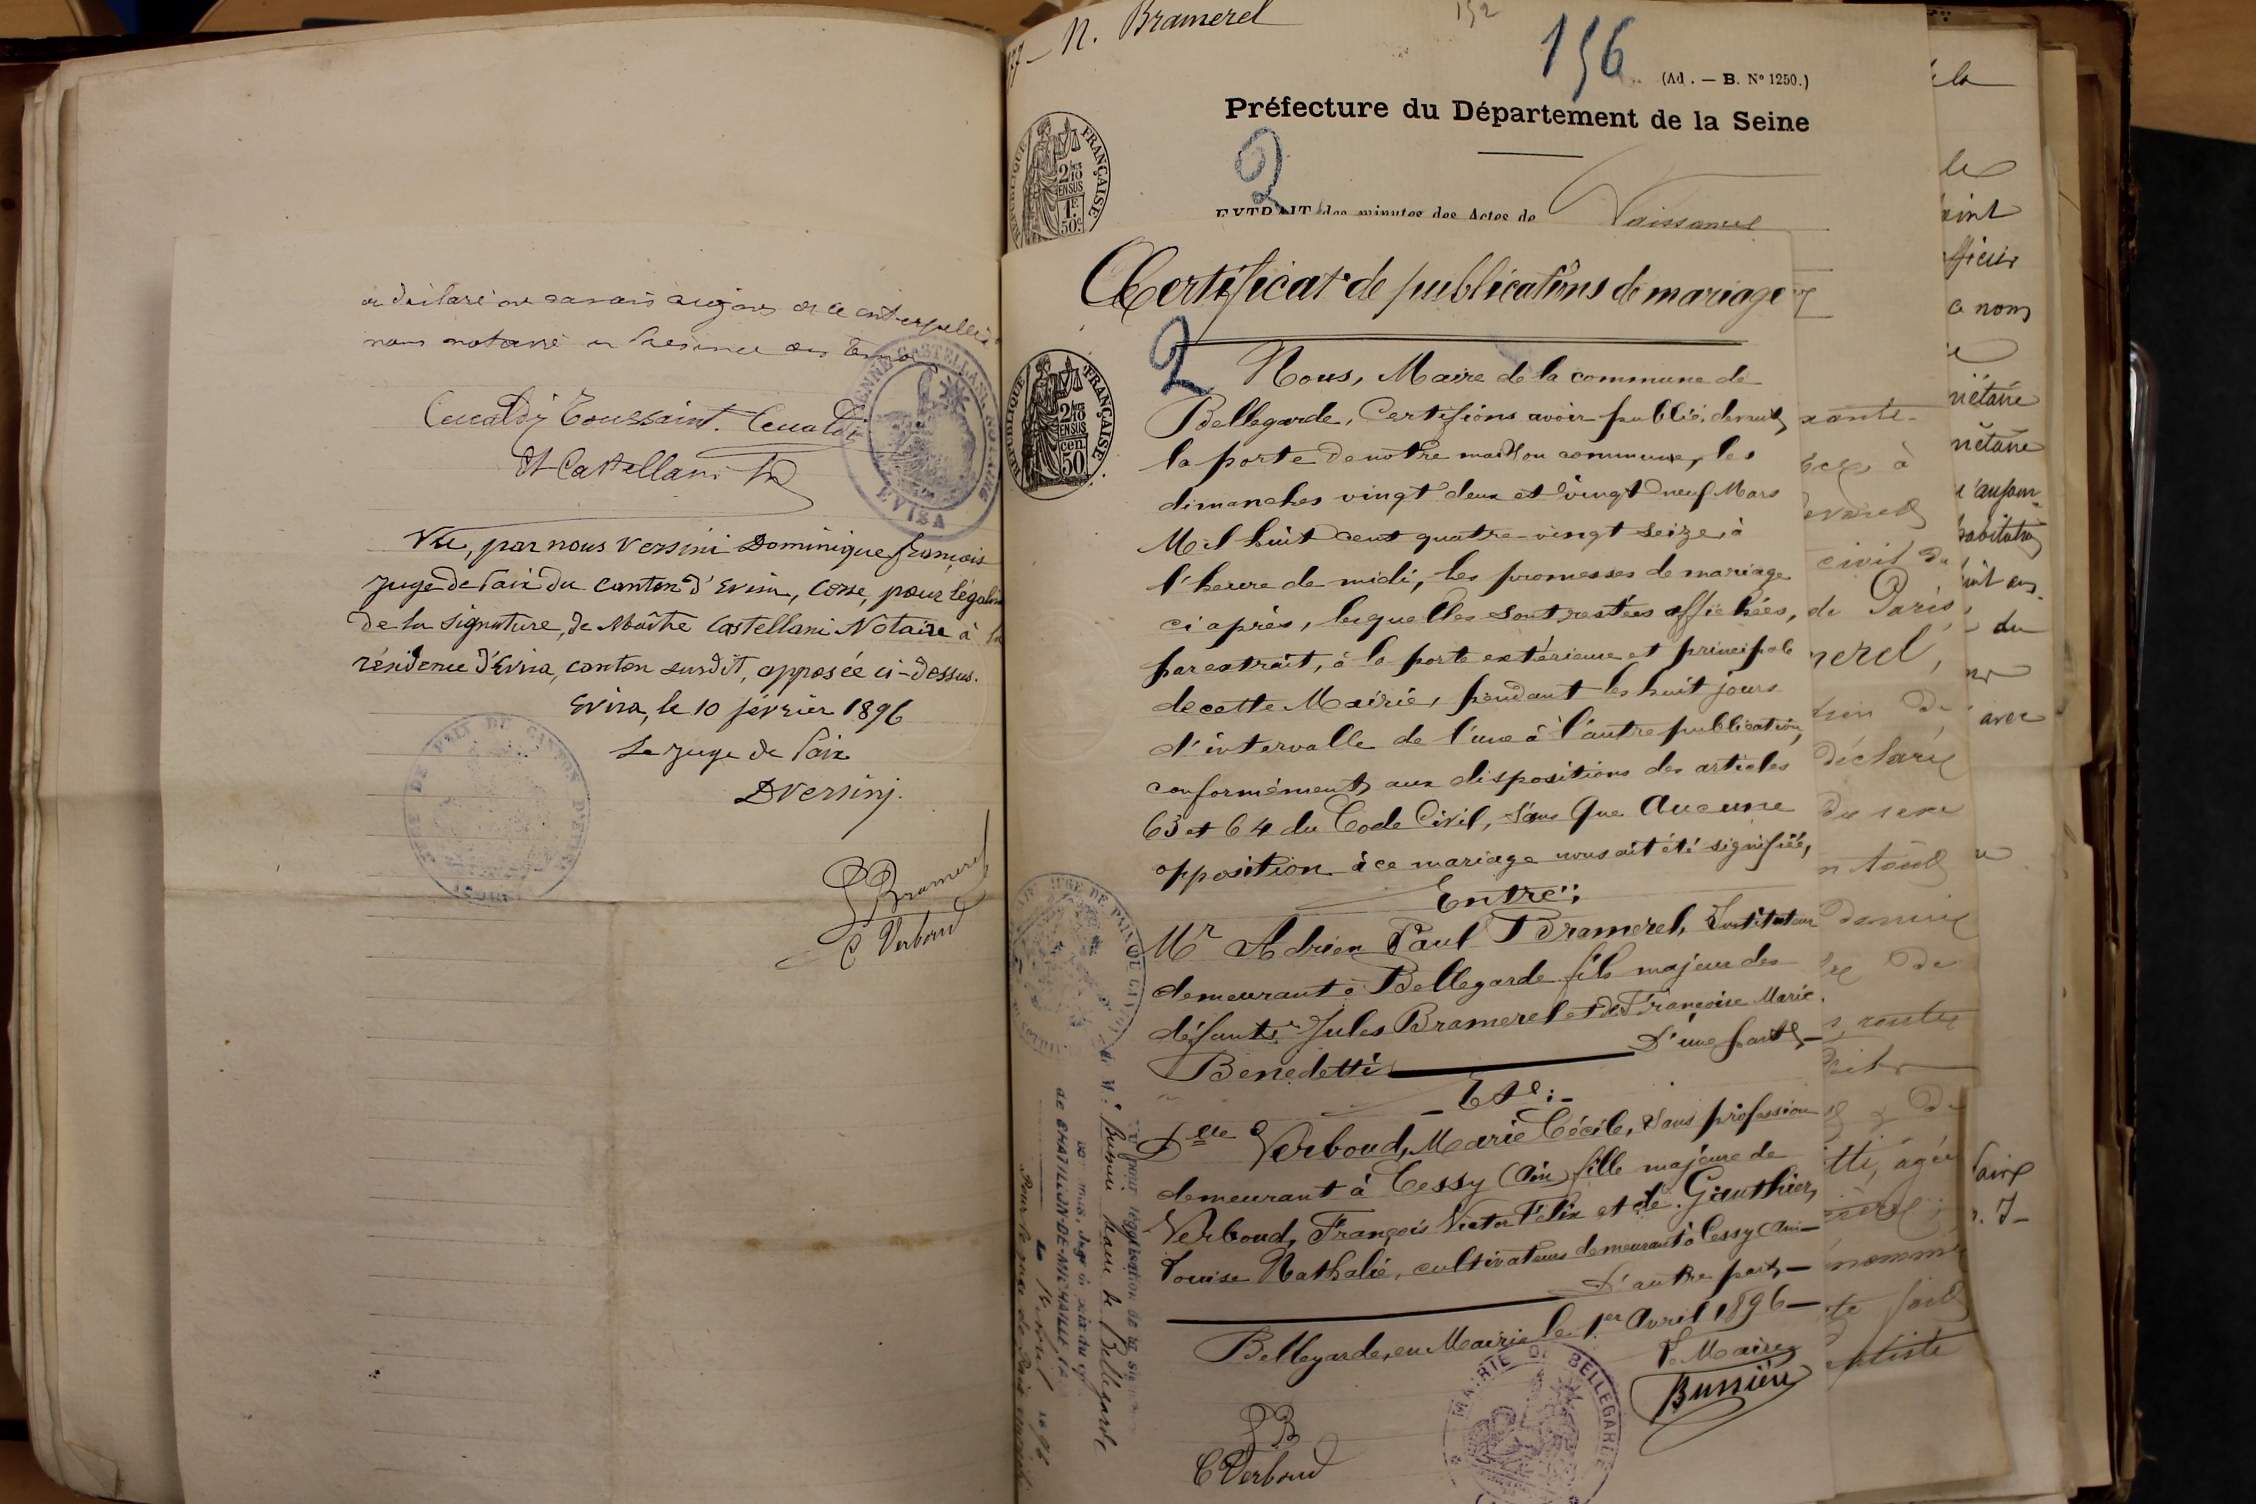 nous notaire en Présence des
Ceccaldi Toussaint. Ceccaldi
Castellani
ETIENNE CASTELLANI NOTAIRE
EVISA
Vu, par nous Versini Dominique françois
Juge de Paix du Canton d'Evisa, Corse, pour légalis
de la signature, de Maître Castellani Notaire à la
résidence d'Evisa, canton susdit, apposée ci-dessus.
Evisa, le 10 février 1896
Le Juge de Paix
DVersini.
DE PAIX DU CANTON D'EVISA
Bramerel
C Verboud
77 - N. Bramerel
152
156
(Ad. — B. N° 1250.)
Préfecture du Département de la Seine
2
RÉPUBLIQUE FRANÇAISE
2/10 EN SUS
1F 50c.
EXTRAIT des minutes des Actes de Naissance
Certificat de publications de mariage
2
RÉPUBLIQUE FRANÇAISE
2/10 EN SUS
50 cen
Nous, Maire de la commune de
Bellegarde, Certifions avoir publié, devant
la porte de notre maison commune, les
dimanches vingt deux et vingt neuf Mars
Mil huit cent quatre-vingt seize, à
l'heure de midi, les promesses de mariage
ci après, lesquelles sont restées affichées,
par extrait, à la porte extérieure et principale
de cette Mairie, pendant les huit jours
d'intervalle de l'une à l'autre publication,
conformément aux dispositions des articles
63 et 64 du Code Civil, sans que aucune
opposition à ce mariage nous ait été signifiée,
Entre:
Mr Adrien Paul Bramerel, Instituteur
demeurant à Bellegarde fils majeur des
défunts Jules Bramerel et de Françoise Marie
Benedetti D'une part,
Et:
Dlle Verboud, Marie Cécile, Sans profession
demeurant à Cessy (Ain) fille majeure de
Verboud, François Victor Félix et de Gauthier,
Louise Nathalie, cultivateurs demeurant à Cessy (Ain)
D'autre part,
Bellegarde, en Mairie le 1er Avril 1896
Le Maire
Bussière
MAIRIE DE BELLEGARDE
C Verboud
Vu pour légalisation de la
de M. Bussière Maire de Bellegarde
de CHATILLON-DE-MICHAILLE
JUGE DE PAIX DU CANTON
de la
c nom
civil du
de Paris,
du
avec
déclaré
du sexe